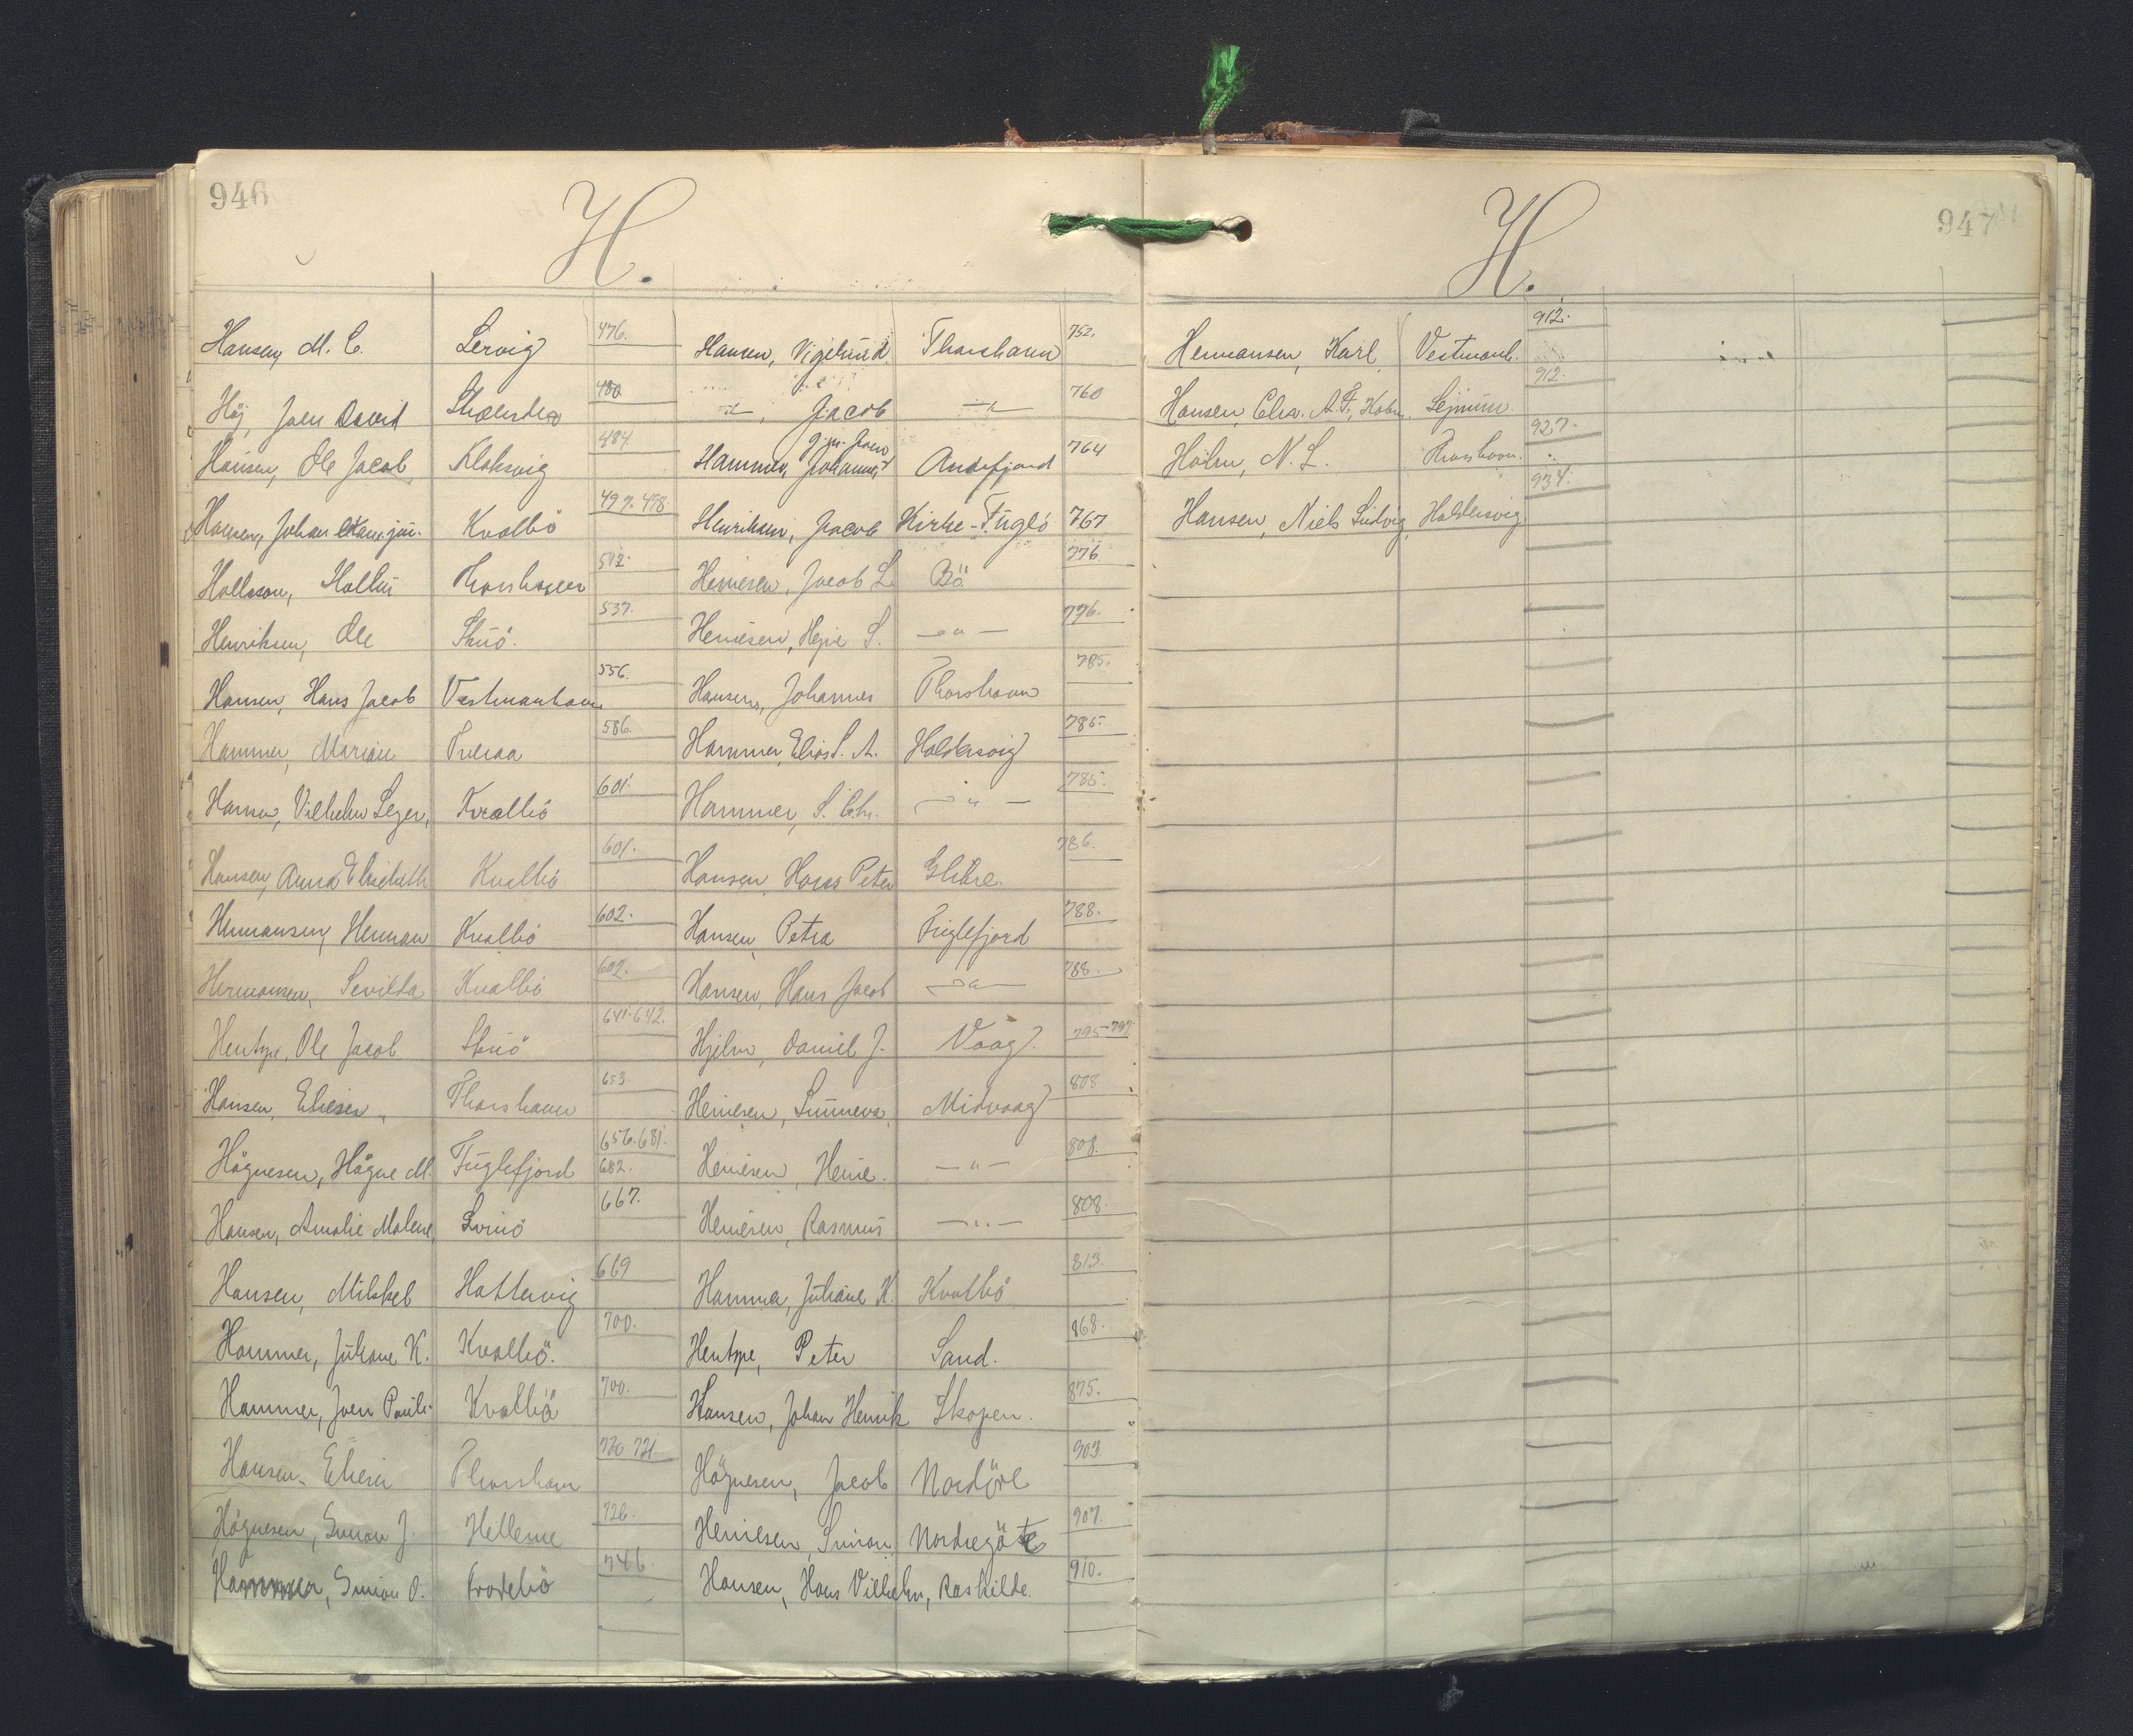 946
H.
Hansen, M. C. Lervig 476.
Höj, Joen David 480
Hansen, Ole Jacob Klaksvig 484.
Hansen, Johan jun. Kvalbö 497. 498.
Thorshavn 512.
Henriksen, Ole Skuö. 537.
Hansen, Hans Jacob Vestmanhavn 556.
Hammer, Marian Tveraa 586.
Hansen, Vilhelm Kvalbö 601.
Hansen, Anna Elisabeth Kvalbö 601.
Hermansen, Herman Kvalbö 602.
Hermansen, Sevilda Kvalbö 602.
Hentze, Ole Jacob Skuö 641-642.
Hansen, Elieser Thorshavn 653.
Högnesen, Högne M. Fuglefjord 656. 681.
682.
Hansen, Amalie Malene, Svinö 667.
Hansen, Mikkel Hattervig 669
Hammer, Juliane K. Kvalbö. 700.
Hammer, Joen Pauli Kvalbö 700.
Hansen, Elieser Thorshavn 721.
Högnesen, Simon J. Hellerne 726.
Hammer, Simon O. 746
Hansen, Vigelund Thorshavn 752.
-"-, Jacob -"- 760
Hammer, Johannes Andefjord 764
Henriksen, Jacob Kirke-Fuglö 767
Heinesen, Jacob L. Bö 776
Heinesen, Hejne S. -"- 776.
Hansen, Johannes Thorshavn 785.
Hammer, Elias S. A. Haldersvig 785.
Hammer, S. Chr. -"- 785.
Hansen, Hans Peter Glibre. 786.
Hansen, Petra Fuglefjord 788.
Hansen, Hans Jacob -"- 788.
Hjelm, Daniel J. Vaag. 795-797
Heinesen, Sunneva, Midvaag 808
Heinesen, Heine. -"- 808.
Heinesen, Rasmus -"- 808.
Hammer, Juliane K. Kvalbö 813.
Hentze, Peter Sand. 868.
Hansen, Johan Henrik Skopen. 875.
Högnesen, Jacob Nordöre 903.
Heinesen, Simon Nordregöte 907.
Hansen, Hans Vilhelm, Roskilde. 910.
947
H.
Hermansen, Karl, Vestmanh. 912.
Hansen, Chr. A. F., 912.
Holm, N. L. Thorshavn. 927.
Hansen, Niels Ludvig, Haldersvig 934.